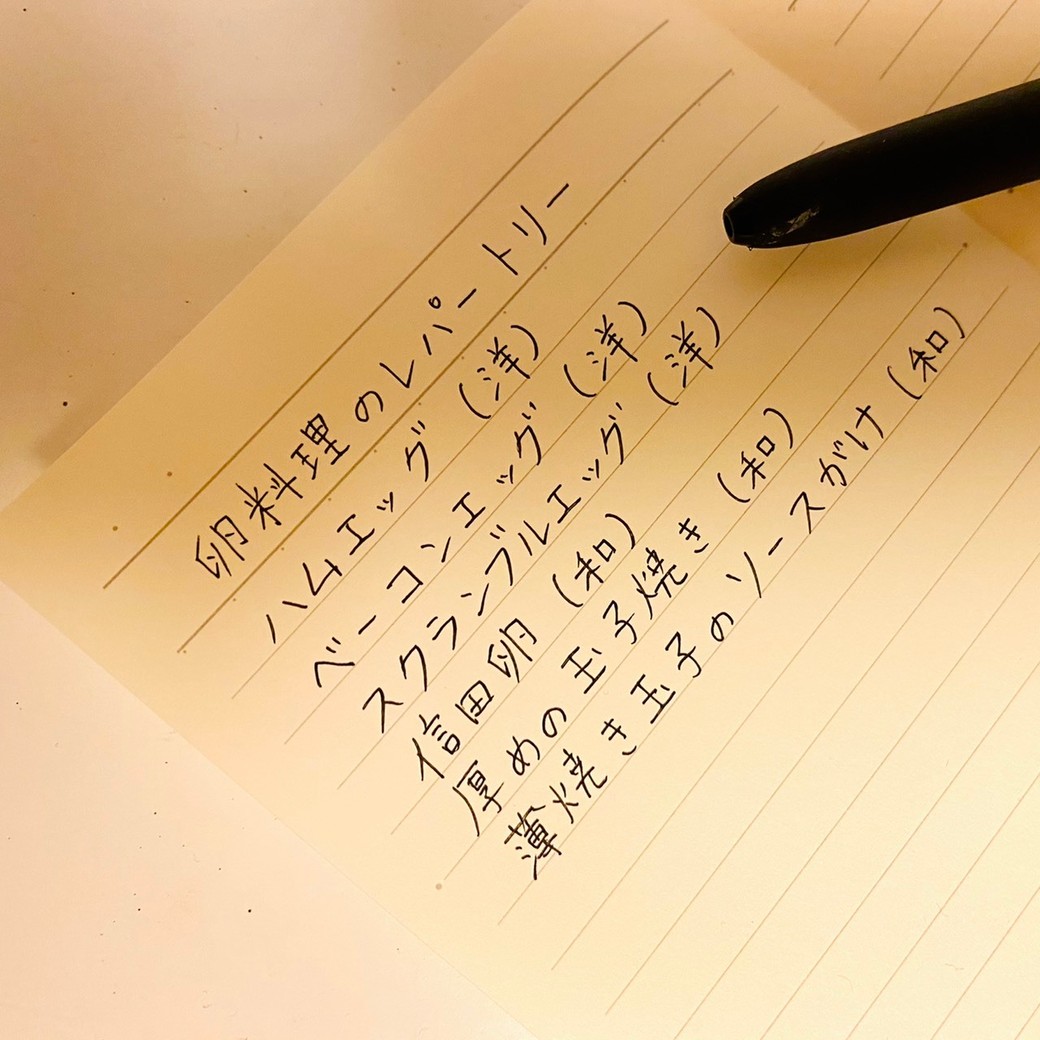 卵料理のレパートリー
ハムエッグ（洋）
ベーコンエッグ（洋）
スクランブルエッグ（洋）
信田卵（和）
厚めの玉子焼き（和）
薄焼き玉子のソースがけ（和）